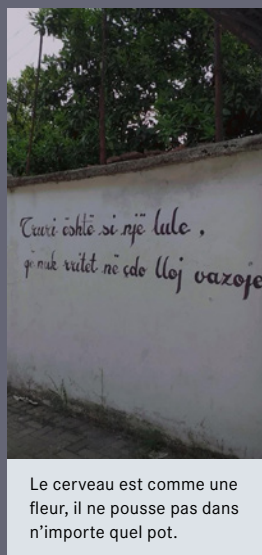 Truri është si një lule,
që nuk rritet në çdo lloj vazoje
Le cerveau est comme une
fleur, il ne pousse pas dans
n’importe quel pot.